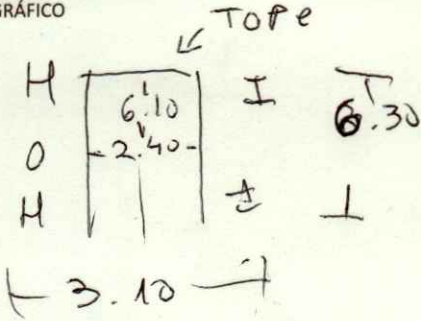 GRÁFICO
TOPe
H 6.10 I 6.30
O 2.40
H I
3.10